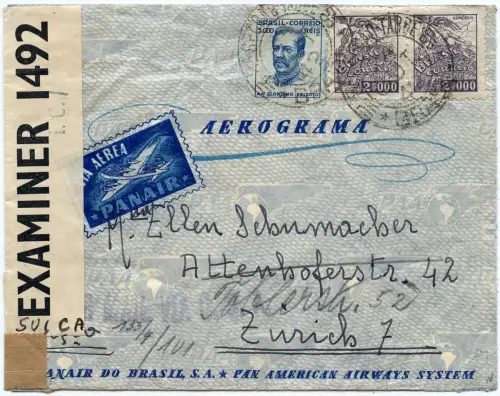 EXAMINER 1492
BRASIL-CORREIO
5000 REIS
MAL. FLORIANO PEIXOTO
2$000
COMERCIO
2$000
AEROGRAMA
VIA AEREA
PANAIR
Ellen Schumacher
Attenhoferstr. 42
52
Zürich 7
SUIÇA
PANAIR DO BRASIL, S.A. ★ PAN AMERICAN AIRWAYS SYSTEM